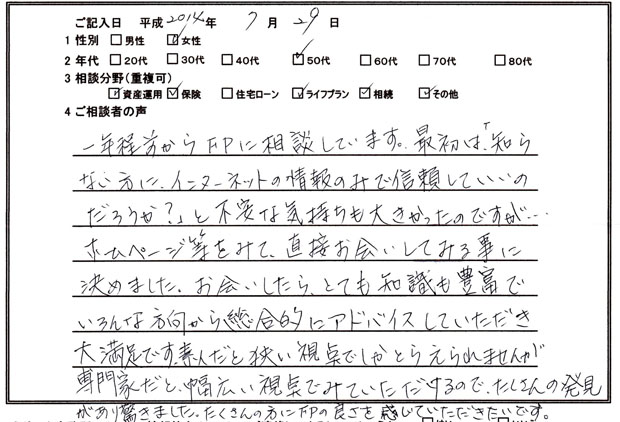 ご記入日 平成 2014年 7月 29日
1 性別 □男性 ☑女性
2 年代 □20代 □30代 □40代 ☑50代 □60代 □70代 □80代
3 相談分野(重複可)
☑資産運用 ☑保険 □住宅ローン ☑ライフプラン ☑相続 ☑その他
4 ご相談者の声
一年程前からFPに相談しています。最初は、「知ら
ない方に、インターネットの情報のみで信頼していいの
だろうか?」と不安な気持ちも大きかったのですが…
ホームページ等をみて、直接お会いしてみる事に
決めました。お会いしたら、とても知識も豊富で
いろんな方向から総合的にアドバイスしていただき
大満足です。素人だと狭い視点でしかとらえられませんが
専門家だと、幅広い視点でみていただけるので、たくさんの発見
があり驚きました。たくさんの方にFPの良さを感じていただきたいです。